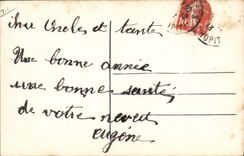 Oncles et tante
Une bonne année
une bonne santé
de votre neveu
Eugène